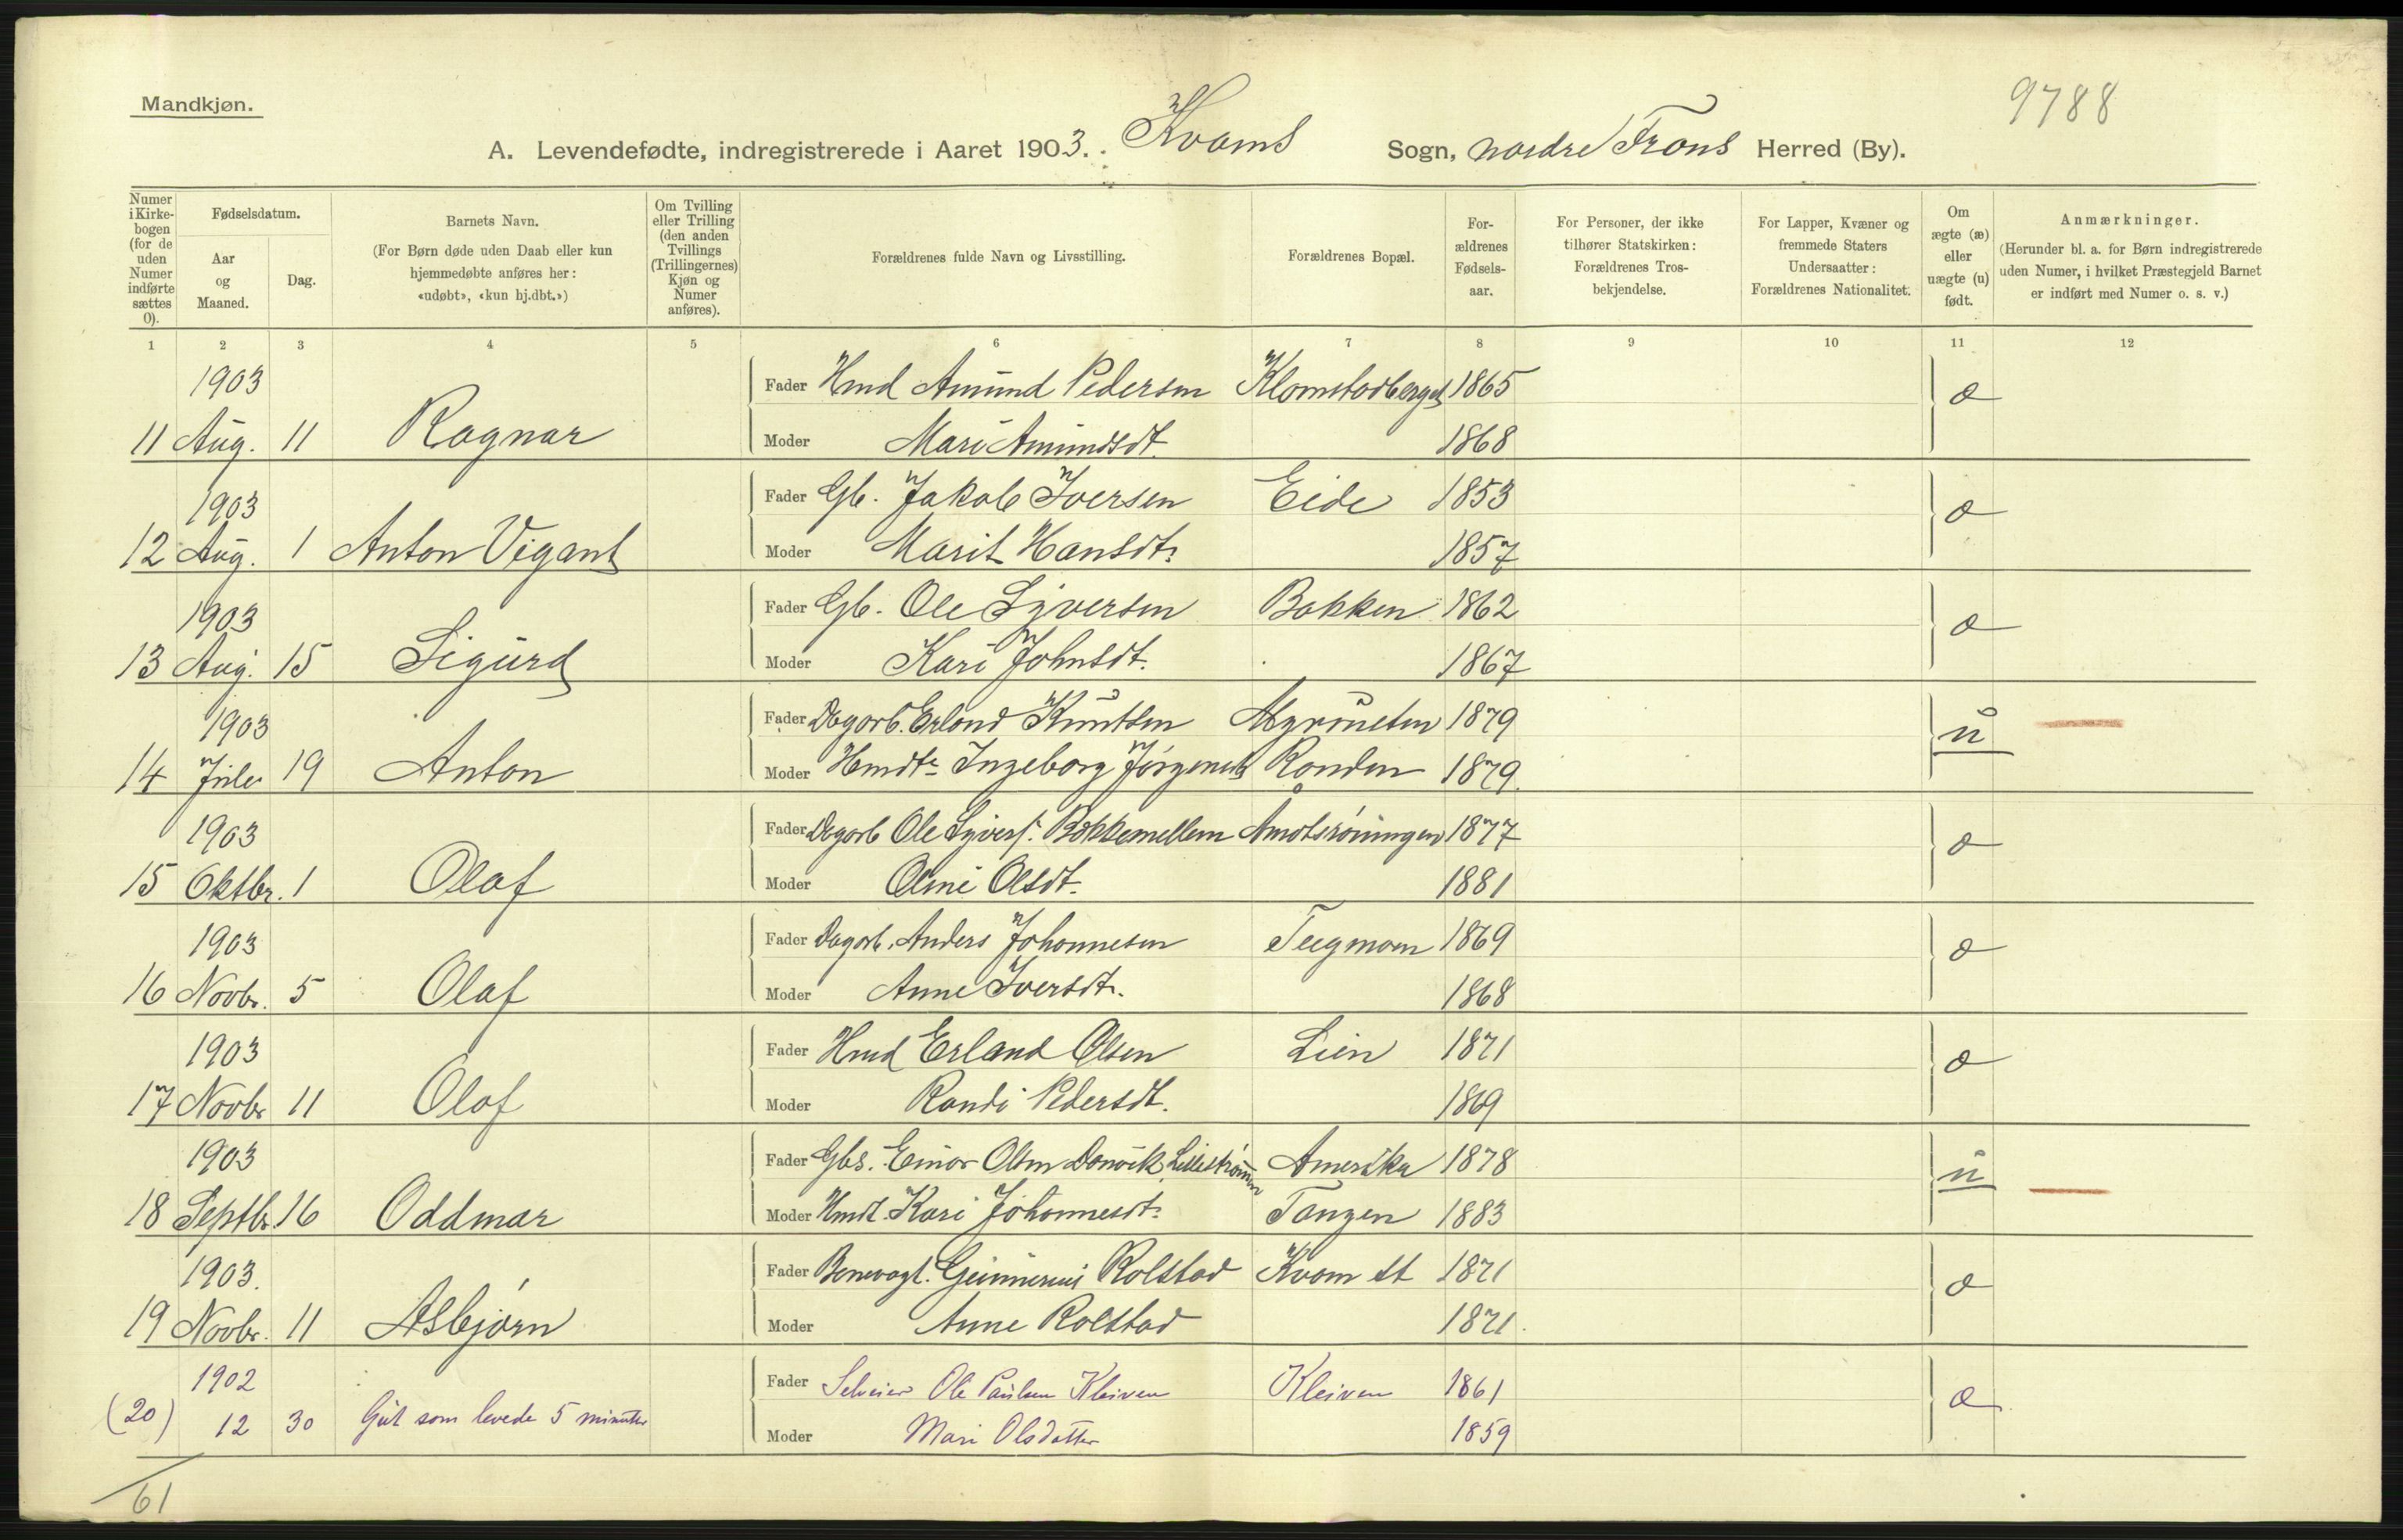 Mandkjøn.
9788
A. Levendefødte, indregistrerede i Aaret 1903. Kvams Sogn, nordre Frons Herred (By).
Numer i Kirke-bogen (for de uden Numer indførte sættes 0).
Fødselsdatum.
Aar og Maaned.
Dag.
Barnets Navn.
(For Børn døde uden Daab eller kun hjemmedøbte anføres her: «udøbt», «kun hj.dbt.»)
Om Tvilling eller Trilling (den anden Tvillings (Trillingernes) Kjøn og Numer anføres).
Forældrenes fulde Navn og Livsstilling.
Forældrenes Bopæl.
For-ældrenes Fødsels-aar.
For Personer, der ikke tilhører Statskirken: Forældrenes Tros-bekjendelse.
For Lapper, Kvæner og fremmede Staters Undersaatter: Forældrenes Nationalitet.
Om ægte (æ) eller uægte (u) født.
Anmærkninger.
(Herunder bl. a. for Børn indregistrerede uden Numer, i hvilket Præstegjeld Barnet er indført med Numer o. s. v.)
1 2 3 4 5 6 7 8 9 10 11 12
1903 Fader Hmd Amund Pedersen Klomstadberget 1865 æ
11 Aug. 11 Ragnar Moder Mari Amundsdt. 1868
1903 Fader Gb. Jakob Iversen Eide 1853 æ
12 Aug. 1 Anton Vigant Moder Marit Hansdtr. 1857
1903 Fader Gb. Ole Syversen Bakken 1862 æ
13 Aug. 15 Sigurd Moder Kari Johnsdt. 1867
1903 Fader Dagarb. Erland Knutsen 1879 u
14 Juli 19 Anton Moder Hmdtr Ingeborg Jørgensdt Randen 1879.
1903 Fader Dagarb Ole Syvers. Bakkemellem 1877 æ
15 Oktbr. 1 Olaf Moder Olsdt. 1881
1903 Fader Dagarb. Anders Johannesen Teigmoen 1869 æ
16 Novbr. 5 Olaf Moder Anne Iversdtr. 1868
1903 Fader Hmd Erland Olsen Lien 1871 æ
17 Novbr 11 Olaf Moder Randi Pedersdt. 1869
1903 Fader Gbs. Einar Olsen Lillestrømmen Amerika 1878 u
18 Septbr. 16 Oddmar Moder Hmdt. Kari Johannesdtr. Tangen 1883
1903. Fader Banevogt. Rolstad Kvam st 1871 æ
19 Novbr. 11 Asbjørn Moder Anne Rolstad 1871.
1902 Fader Selveier Ole Paulsen Kleiven Kleiven 1861 æ
(20) 12 30 Gut som levede 5 minutter Moder Mari Olsdatter 1859
61